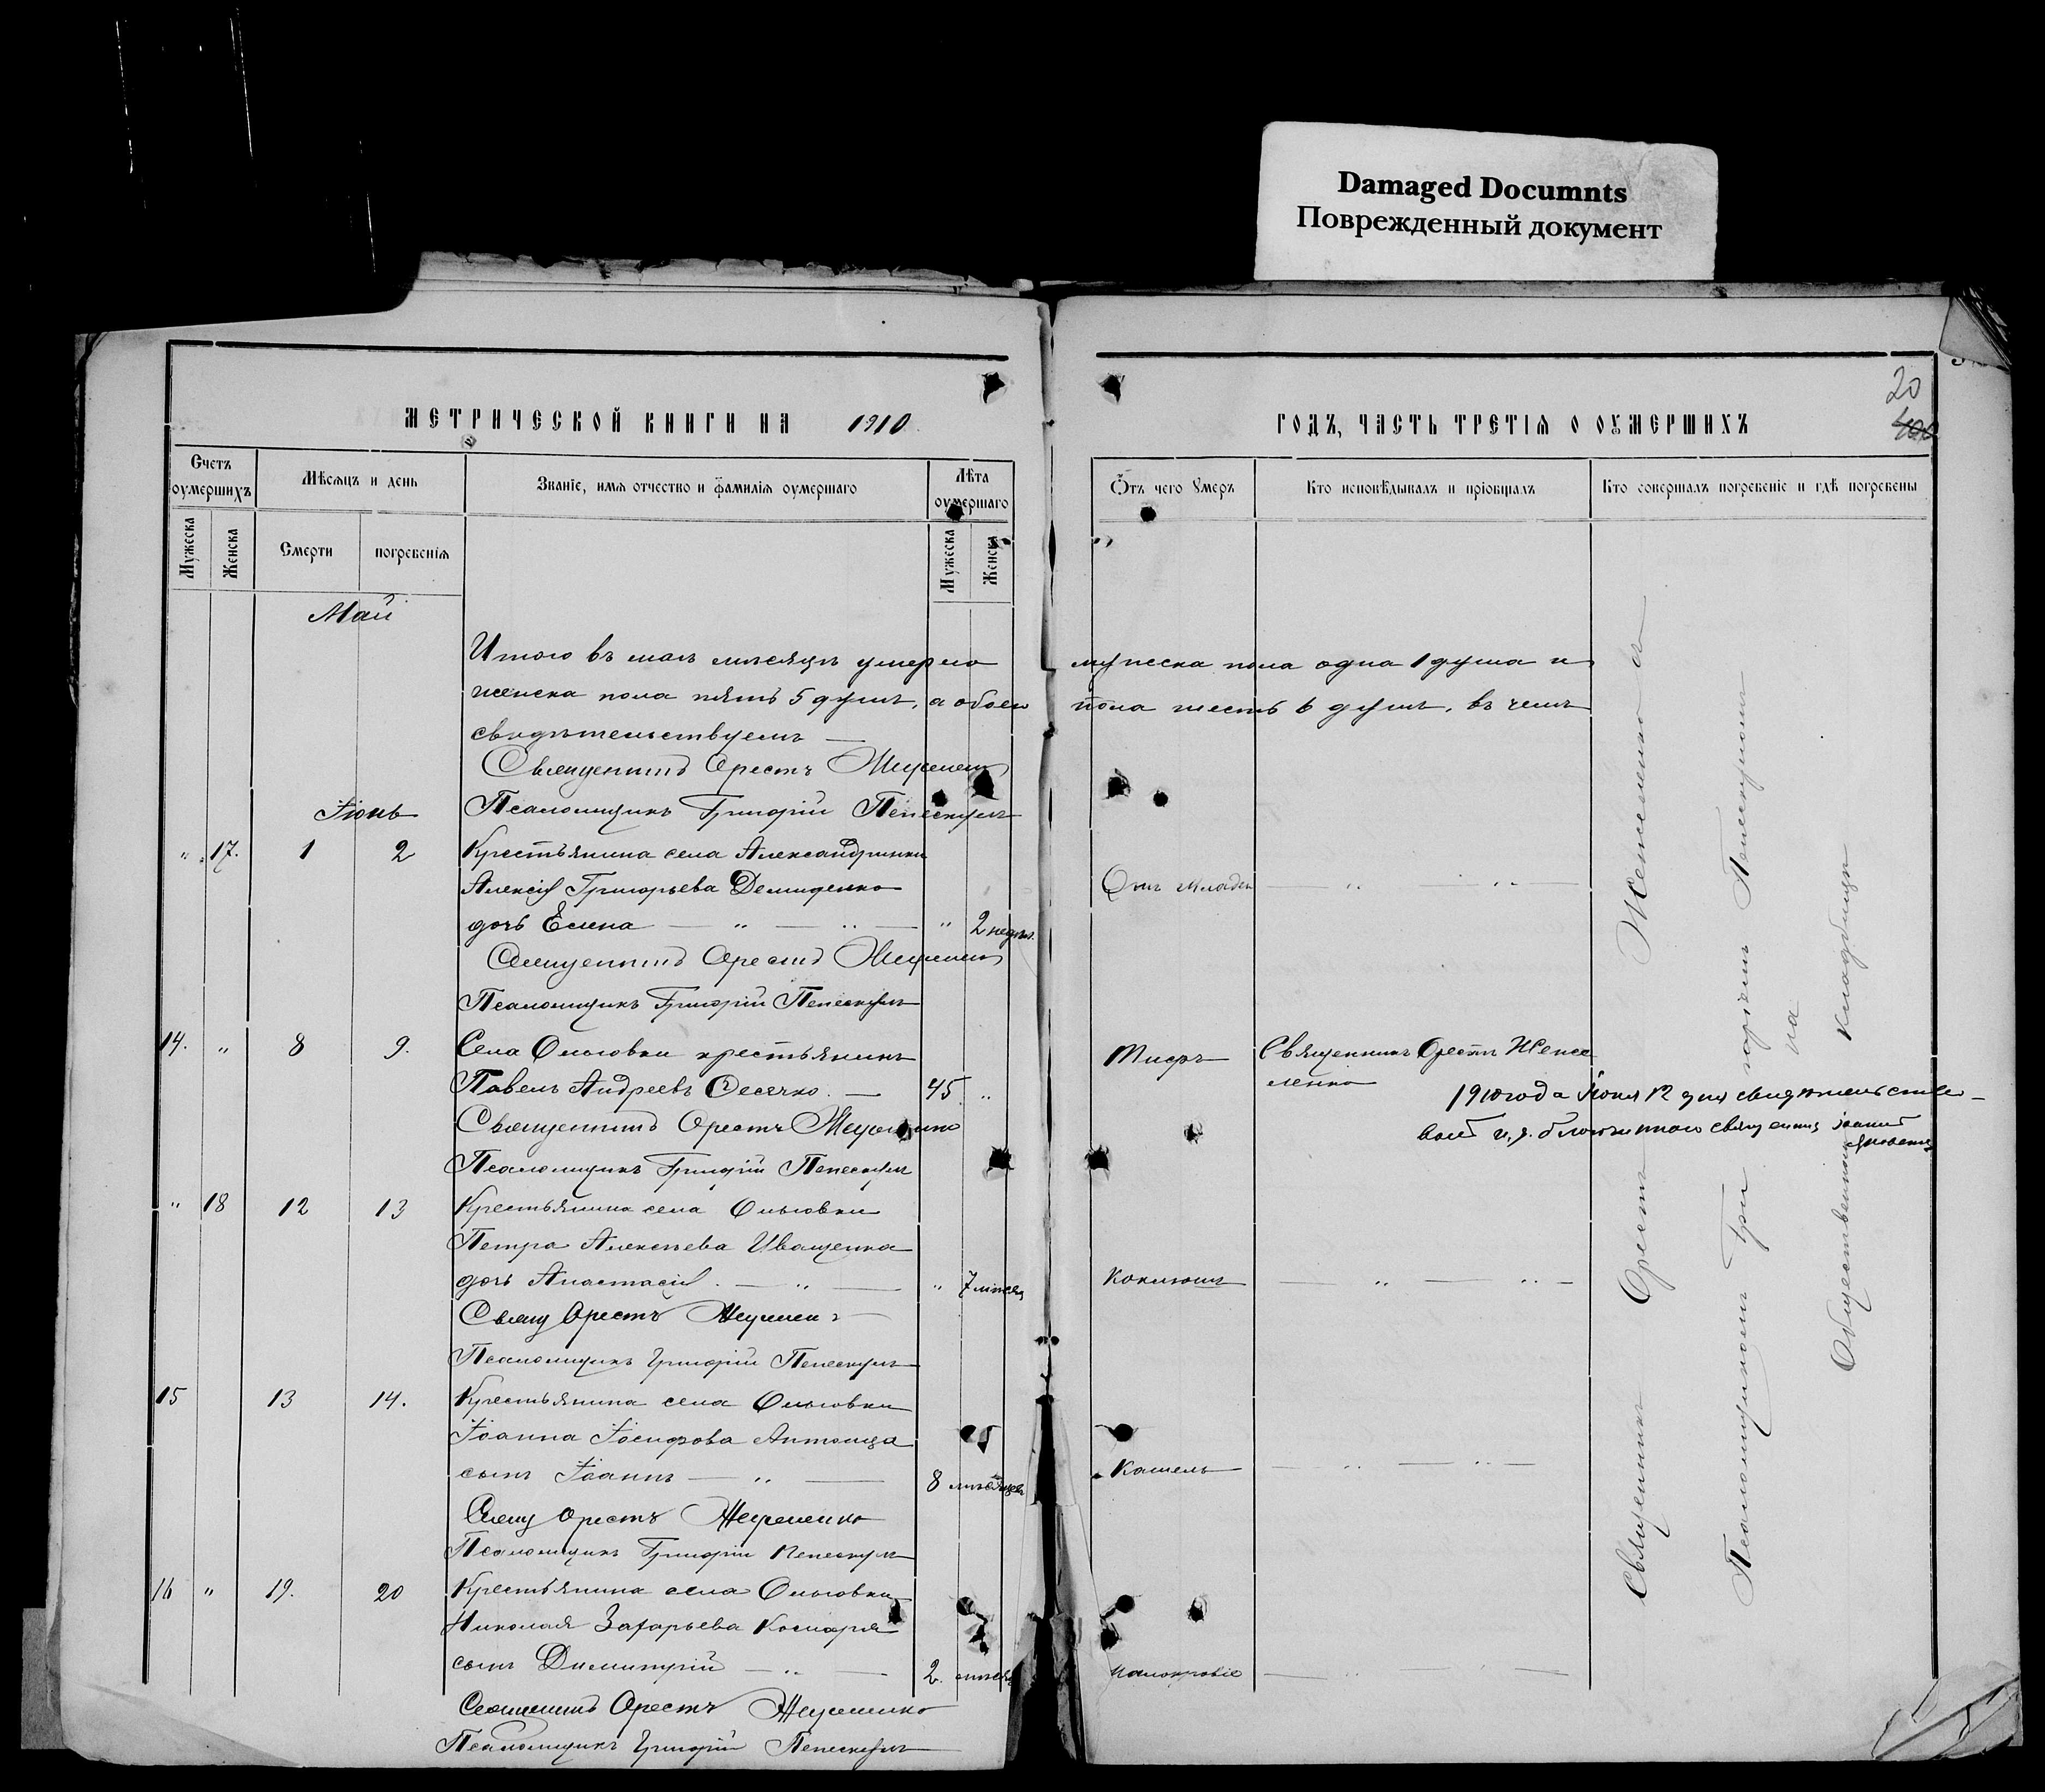 Damaged Documnts
Поврежденный документ
МЕТРИЧЕСКОЙ КНИГИ НА 1910
ГОДЪ, ЧАСТЬ ТРЕТІЯ О ОУМЕРШИХЪ
20
Счетъ оумершихъ
Мѣсяцъ и день
Званіе, имя отчество и фамилія оумершаго
Лѣта оумершаго
Отъ чего умеръ
Кто исповѣдывалъ и пріобщалъ
Кто совершалъ погребеніе и гдѣ погребены
Мужеска
Женска
Смерти
погребенія
Мужеска
Женска
Май
Итого въ маѣ мѣсяцѣ умерло мужеска пола одна 1 душа и
женска пола пять 5 душъ, а обоего пола шесть 6 душъ, въ чемъ
свидѣтельствуемъ
Священникъ Орестъ
Іюнь
Псаломщикъ Григорій Пепескулъ
" 17. 1 2 Крестьянина села Александринки
Алексія Григорьева Демиденко
дочь Елена " 2 недѣл.
Священникъ Орестъ
Псаломщикъ Григорій Пепескулъ
14. " 8 9. Села Ольговки крестьянинъ Тифъ Священникъ Орестъ
Павелъ Андреевъ 45 "
1910 года Іюня 12 дня свидѣтельство-
валъ и. д. благочиннаго священникъ Іоаннъ
Священникъ Орестъ
Псаломщикъ Григорій Пепескулъ
" 18 12 13 Крестьянина села Ольговки
Петра Алексѣева Иващенка
дочь Анастасія " 7 мѣсяц Коклюшъ
Свящ Орестъ
Псаломщикъ Григорій Пепескулъ
15 13 14. Крестьянина села Ольговки
Іоанна Іосифова
сынъ Іоаннъ 8 мѣсяцев Кашель
Свящ Орестъ
Псаломщикъ Григорій Пепескулъ
16 " 19. 20 Крестьянина села Ольговки
Николая Захарьева
сынъ Димитрій 2. мѣсяц Малокровіе
Священникъ Орестъ
Псаломщикъ Григорій Пепескулъ
Священникъ Орестъ
Псаломщикомъ Гри горіемъ Пепескуломъ
на
Общественномъ кладбищѣ